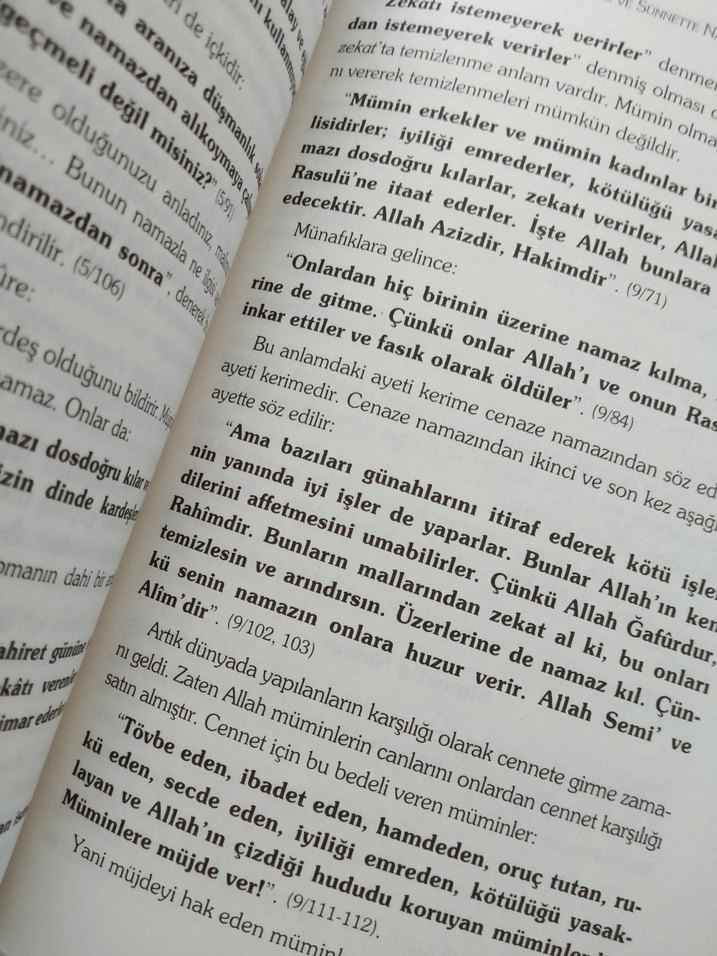 alay ve
ri de içkidir:
aranıza düşmanlık sok
ve namazdan alıkoymaya çalış
geçmeli değil misiniz?” (5/91)
zere olduğunuzu anladınız, mal
siniz... Bunun namazla ne ilgisi ve
namazdan sonra”, denerek
ndirilir. (5/106)
ûre:
rdeş olduğunu bildirir. Mü
namaz. Onlar da:
mazı dosdoğru kılar ve
izin dinde kardeşle
omanın dahi bir
ahiret gününe
ekâtı verenler
imar ederler
VE SÜNNETTE NA
Zekatı istemeyerek verirler” denme
dan istemeyerek verirler” denmiş olması
zekat’ta temizlenme anlam vardır. Mümin olma
nı vererek temizlenmeleri mümkün değildir.
“Mümin erkekler ve mümin kadınlar bir
lisidirler; iyiliği emrederler, kötülüğü yasa
mazı dosdoğru kılarlar, zekatı verirler, Alla
Rasulü’ne itaat ederler. İşte Allah bunlara
edecektir. Allah Azizdir, Hakimdir”. (9/71)
Münafıklara gelince:
“Onlardan hiç birinin üzerine namaz kılma,
rine de gitme. Çünkü onlar Allah’ı ve onun Ras
inkar ettiler ve fasık olarak öldüler”. (9/84)
Bu anlamdaki ayeti kerime cenaze namazından söz ed
ayeti kerimedir. Cenaze namazından ikinci ve son kez aşağı
ayette söz edilir:
“Ama bazıları günahlarını itiraf ederek kötü işler
nin yanında iyi işler de yaparlar. Bunlar Allah’ın ken
dilerini affetmesini umabilirler. Çünkü Allah Ğafûrdur,
Rahîmdir. Bunların mallarından zekat al ki, bu onları
temizlesin ve arındırsın. Üzerlerine de namaz kıl. Çün-
kü senin namazın onlara huzur verir. Allah Semi’ ve
Alîm’dir”. (9/102, 103)
Artık dünyada yapılanların karşılığı olarak cennete girme zama-
nı geldi. Zaten Allah müminlerin canlarını onlardan cennet karşılığı
satın almıştır. Cennet için bu bedeli veren müminler:
“Tövbe eden, ibadet eden, hamdeden, oruç tutan, ru-
kü eden, secde eden, iyiliği emreden, kötülüğü yasak-
layan ve Allah’ın çizdiği hududu koruyan müminler
Müminlere müjde ver!”. (9/111-112).
Yani müjdeyi hak eden müminl